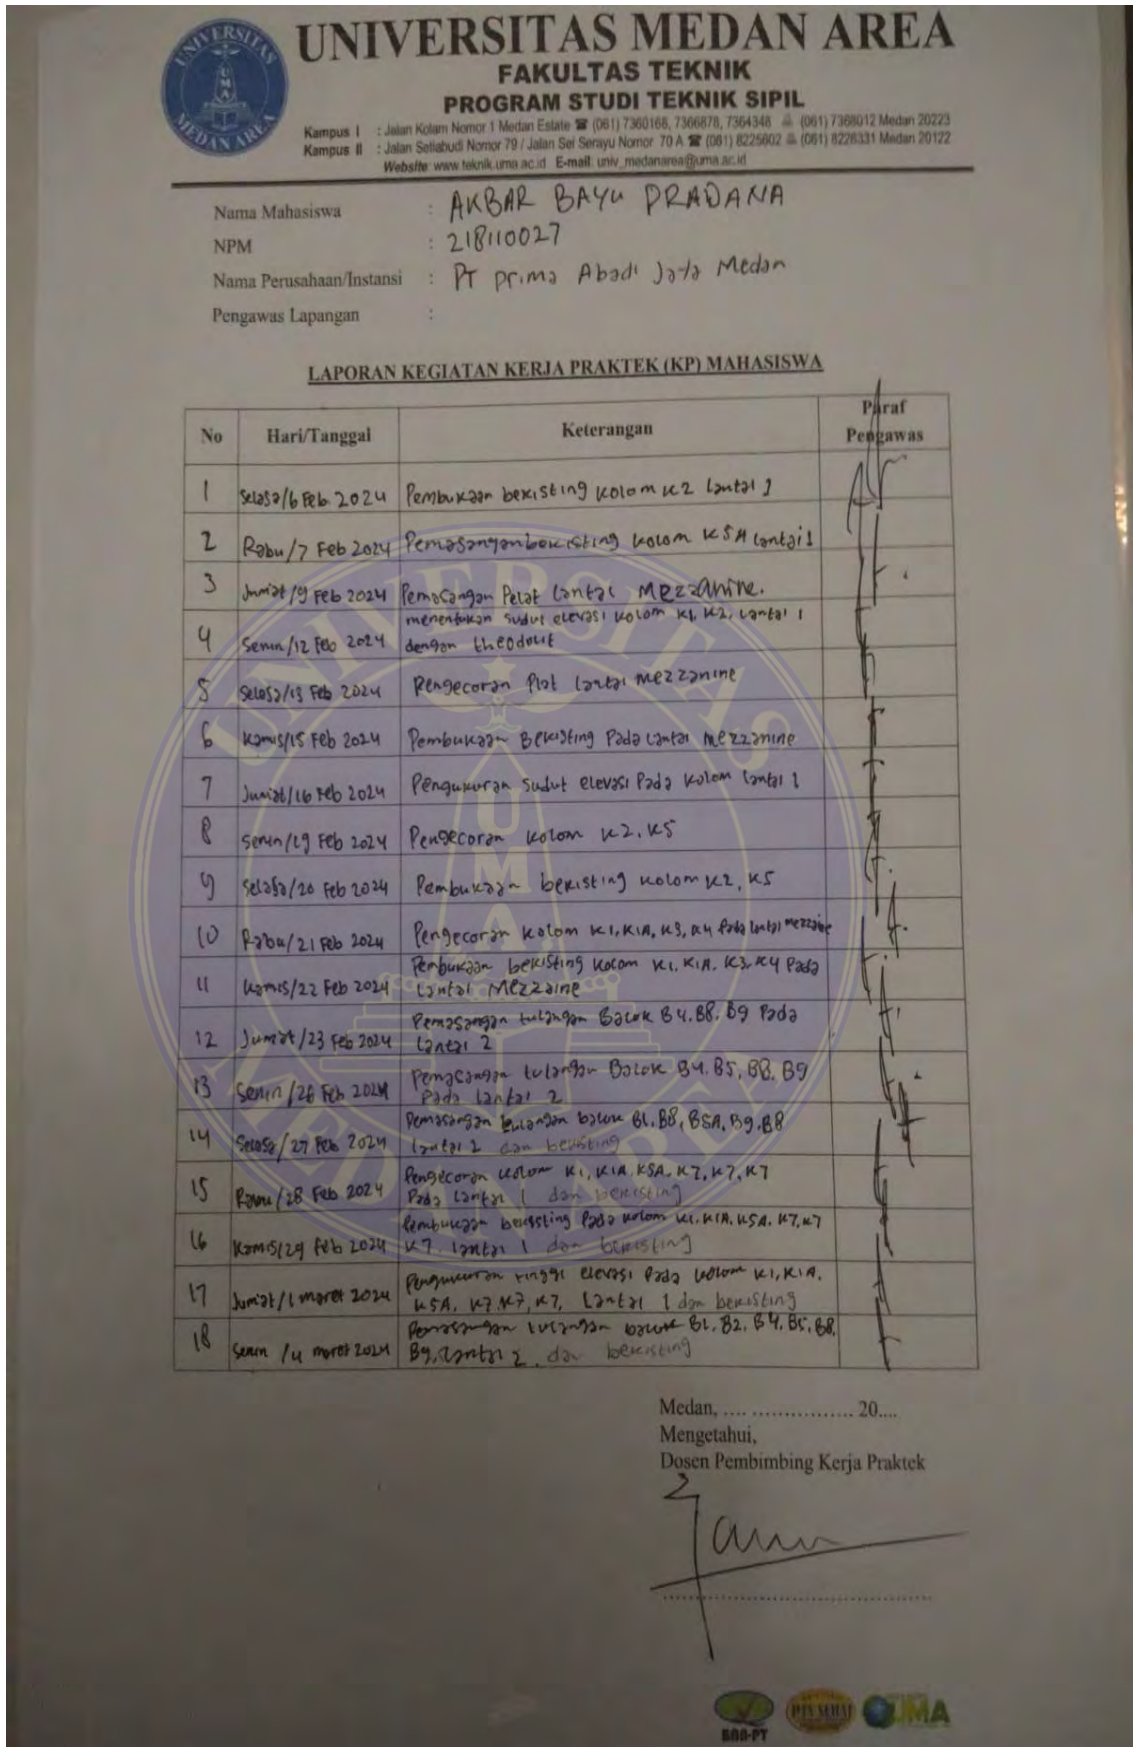 UNIVERSITAS MEDAN AREA
FAKULTAS TEKNIK
PROGRAM STUDI TEKNIK SIPIL
Kampus I : Jalan Kolam Nomor 1 Medan Estate ☎ (061) 7360168, 7366878, 7364348 (061) 7368012 Medan 20223
Kampus II : Jalan Setiabudi Nomor 79 / Jalan Sei Serayu Nomor 70 A ☎ (061) 8225602 (061) 8226331 Medan 20122
Website: www.teknik.uma.ac.id E-mail: univ_medanarea@uma.ac.id
UNIVERSITAS
UMA
MEDAN AREA
Nama Mahasiswa : AKBAR BAYU PRADANA
NPM : 218110027
Nama Perusahaan/Instansi : PT prima Abadi Jaya Medan
Pengawas Lapangan :
LAPORAN KEGIATAN KERJA PRAKTEK (KP) MAHASISWA
No Hari/Tanggal Keterangan Paraf Pengawas
1 Selasa/6 Feb 2024 Pembukaan bekisting kolom K2 lantai 1
2 Rabu/7 Feb 2024 Pemasangan bekisting kolom K5A lantai 1
3 Jumat/9 Feb 2024 Pemasangan Pelat lantai Mezzanine.
4 Senin/12 Feb 2024 menentukan sudut elevasi kolom K1, K2, lantai 1
dengan theodolit
5 Selasa/13 Feb 2024 Pengecoran Plat lantai mezzanine
6 Kamis/15 Feb 2024 Pembukaan Bekisting Pada lantai mezzanine
7 Jumat/16 Feb 2024 Pengukuran sudut elevasi Pada kolom lantai 1
8 Senin/19 Feb 2024 Pengecoran kolom K2, K5
9 Selasa/20 Feb 2024 Pembukaan bekisting kolom K2, K5
10 Rabu/21 Feb 2024 Pengecoran kolom K1, K1A, K3, K4 Pada lantai mezzaine
11 Kamis/22 Feb 2024 Pembukaan bekisting kolom K1, K1A, K3, K4 Pada
lantai Mezzaine
12 Jumat/23 Feb 2024 Pemasangan tulangan Balok B4, B8, B9 Pada
lantai 2
13 Senin/26 Feb 2024 Pemasangan tulangan Balok B4, B5, B8, B9
Pada lantai 2
14 Selasa/27 Feb 2024 Pemasangan tulangan balok B1, B8, B5A, B9, B8
lantai 2 dan bekisting
15 Rabu/28 Feb 2024 Pengecoran kolom K1, K1A, K5A, K7, K7, K7
Pada lantai 1 dan bekisting
16 Kamis/29 Feb 2024 Pembukaan bekissting Pada kolom K1, K1A, K5A, K7, K7
K7 lantai 1 dan bekisting
17 Jumat/1 maret 2024 Pengukuran tinggi elevasi Pada kolom K1, K1A,
K5A, K7, K7, K7, Lantai 1 dan bekisting
18 Senin/4 maret 2024 Pemasangan tulangan balok B1, B2, B4, B5, B8,
B9, lantai 2, dan bekisting
Medan, .... ................. 20....
Mengetahui,
Dosen Pembimbing Kerja Praktek
BAN-PT
UMA